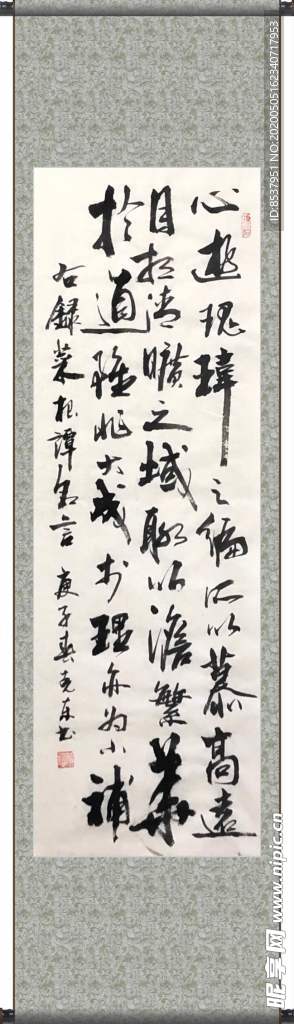 心遊瑰瑋之編所以慕高遠
目想清曠之域聊以澹繁華
於道雖非大成於理亦为小補
右錄菜根譚名言 庚子春克东书
ID:8537951 NO:20200505162340717953
昵享网 www.nipic.cn